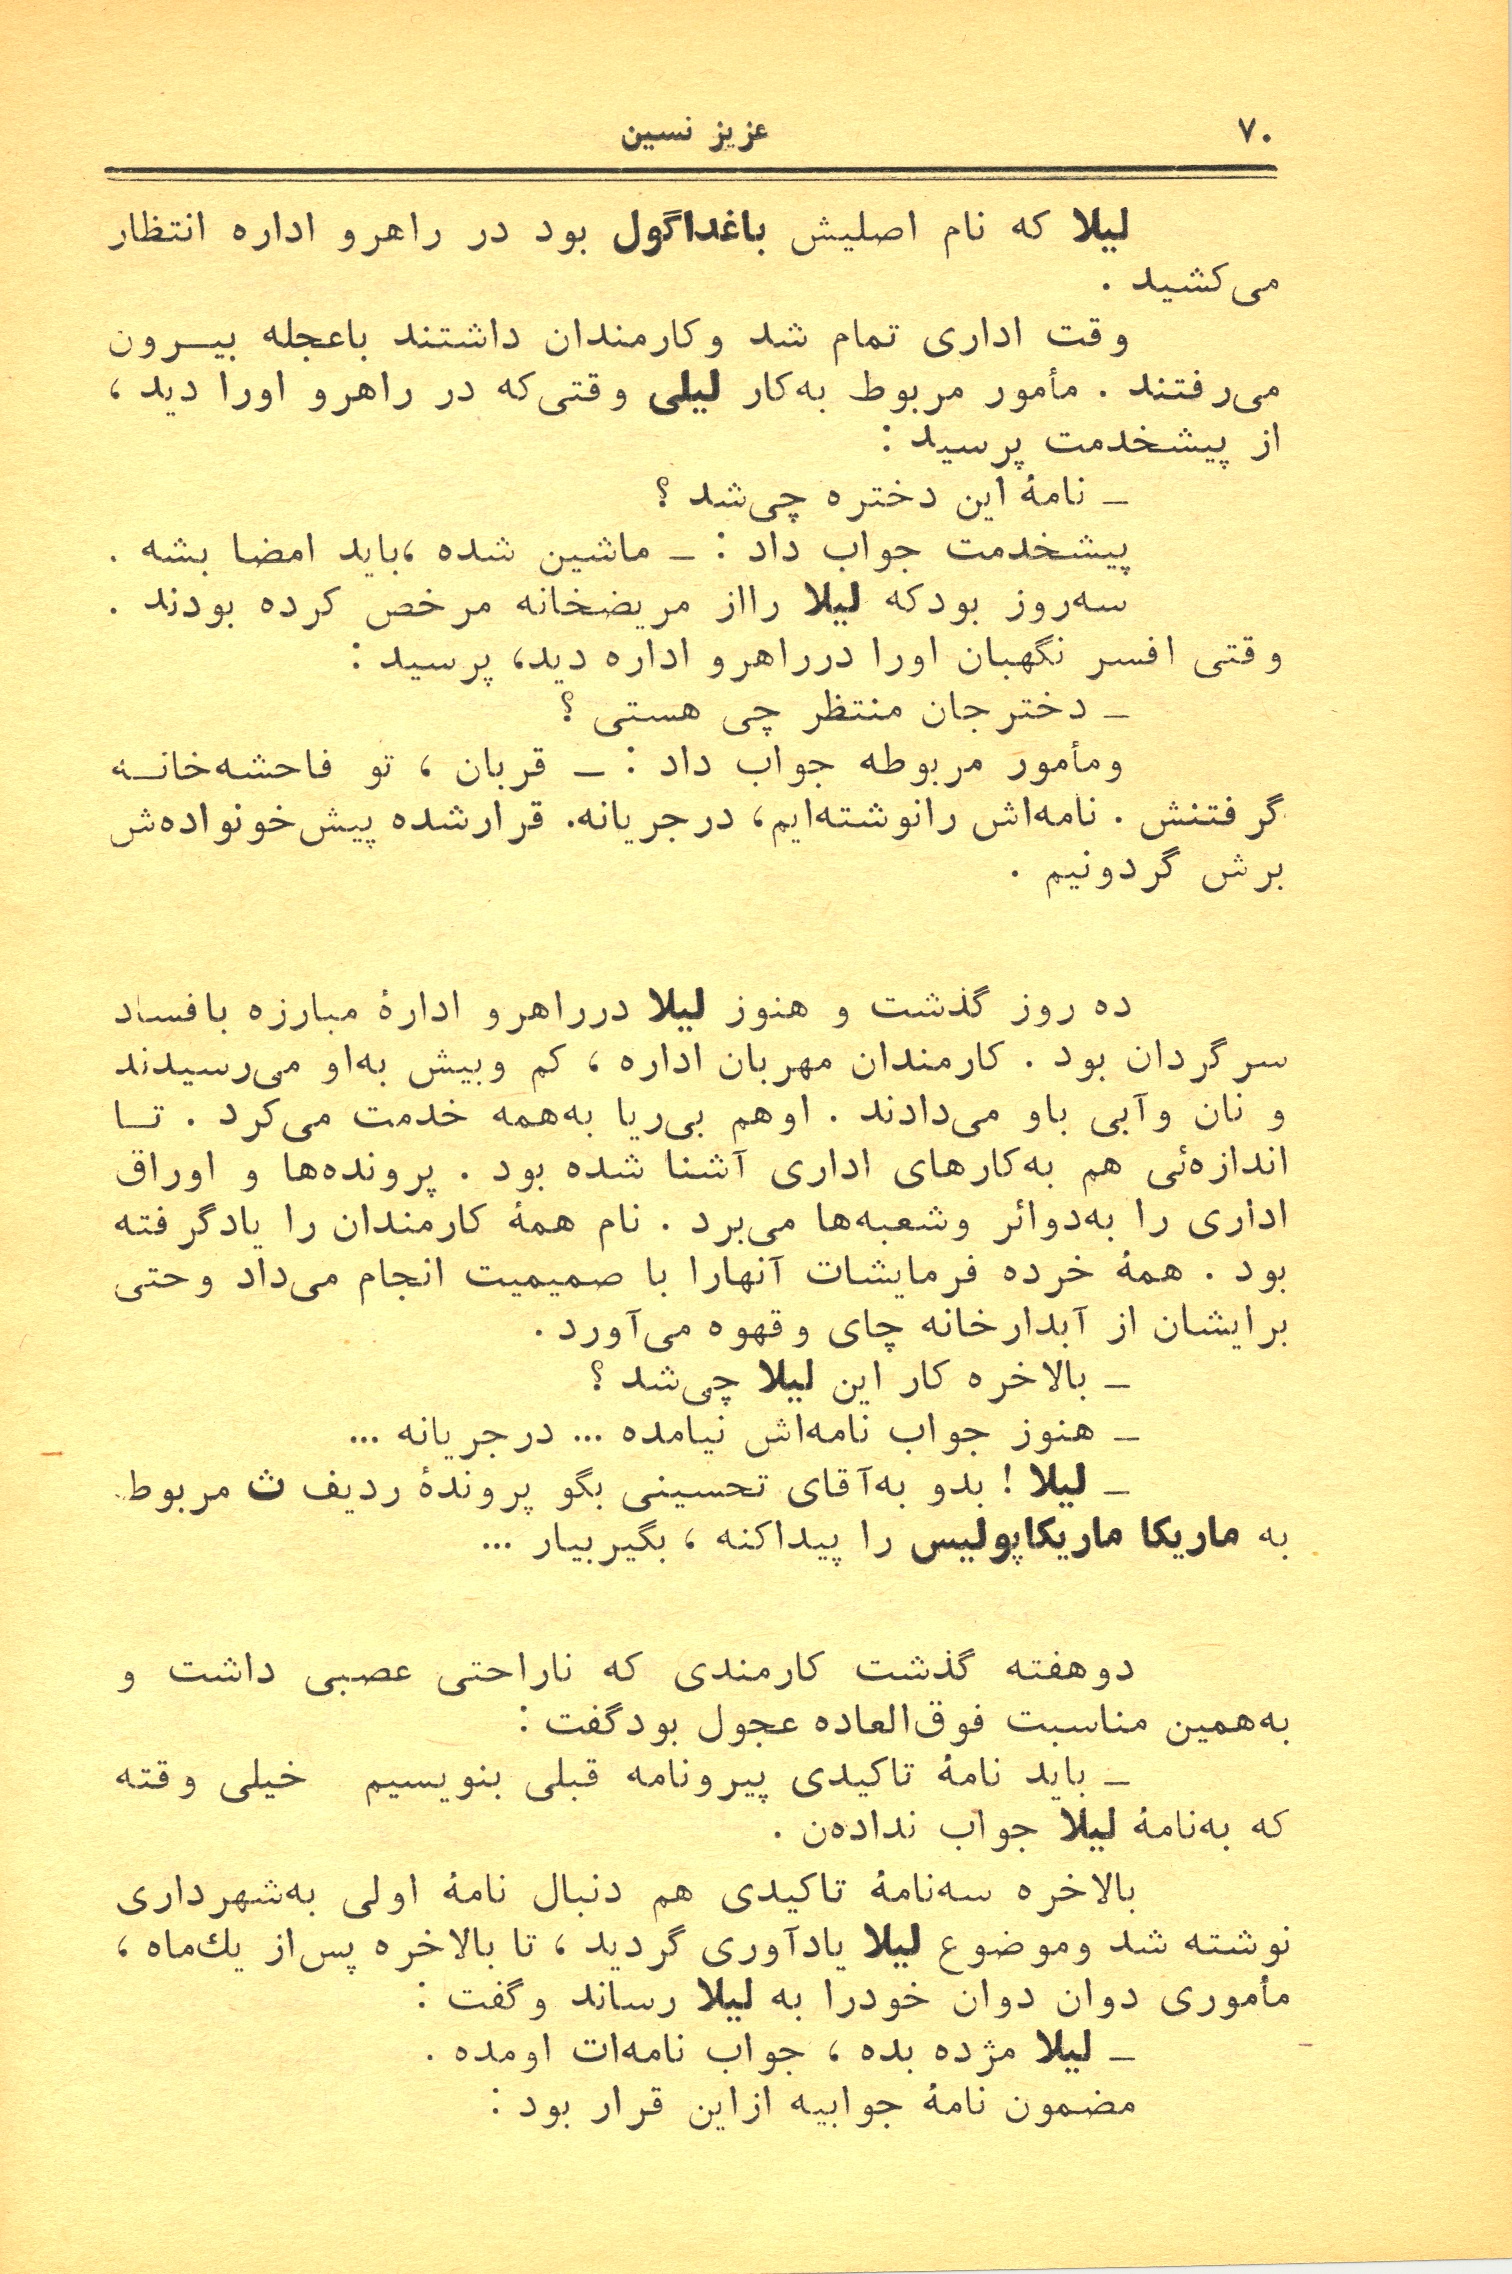 ۷۰
عزیز نسین
لیلا که نام اصلیش باغداگول بود در راهرو اداره انتظار
می‌کشید .
وقت اداری تمام شد وکارمندان داشتند باعجله بیـــرون
می‌رفتند . مأمور مربوط به‌کار لیلی وقتی‌که در راهرو اورا دید ،
از پیشخدمت پرسید :
ـ نامهٔ این دختره چی‌شد ؟
پیشخدمت جواب داد : ـ ماشین شده ،باید امضا بشه .
سه‌روز بودکه لیلا رااز مریضخانه مرخص کرده بودند .
وقتی افسر نگهبان اورا درراهرو اداره دید، پرسید :
ـ دخترجان منتظر چی هستی ؟
ومأمور مربوطه جواب داد : ـ قربان ، تو فاحشه‌خانـه
گرفتنش . نامه‌اش رانوشته‌ایم، درجریانه. قرارشده پیش‌خونواده‌ش
برش گردونیم .
ده روز گذشت و هنوز لیلا درراهرو ادارهٔ مبارزه بافساد
سرگردان بود . کارمندان مهربان اداره ، کم وبیش به‌او می‌رسیدند
و نان وآبی باو می‌دادند . اوهم بی‌ریا به‌همه خدمت می‌کرد . تــا
اندازه‌ئی هم به‌کارهای اداری آشنا شده بود . پرونده‌ها و اوراق
اداری را به‌دوائر وشعبه‌ها می‌برد . نام همهٔ کارمندان را یادگرفته
بود . همهٔ خرده فرمایشات آنهارا با صمیمیت انجام می‌داد وحتی
برایشان از آبدارخانه چای وقهوه می‌آورد.
ـ بالاخره کار این لیلا چی‌شد ؟
ـ هنوز جواب نامه‌اش نیامده ... درجریانه ...
ـ لیلا ! بدو به‌آقای تحسینی بگو پروندهٔ ردیف ث مربوط
به ماریکا ماریکاپولیس را پیداکنه ، بگیربیار ...
دوهفته گذشت کارمندی که ناراحتی عصبی داشت و
به‌همین مناسبت فوق‌العاده عجول بودگفت :
ـ باید نامهٔ تاکیدی پیرونامه قبلی بنویسیم خیلی وقته
که به‌نامهٔ لیلا جواب نداده‌ن .
بالاخره سه‌نامهٔ تاکیدی هم دنبال نامهٔ اولی به‌شهرداری
نوشته شد وموضوع لیلا یادآوری گردید ، تا بالاخره پس‌از یك‌ماه ،
مأموری دوان دوان خودرا به لیلا رساند وگفت :
ـ لیلا مژده بده ، جواب نامه‌ات اومده .
مضمون نامهٔ جوابیه ازاین قرار بود :